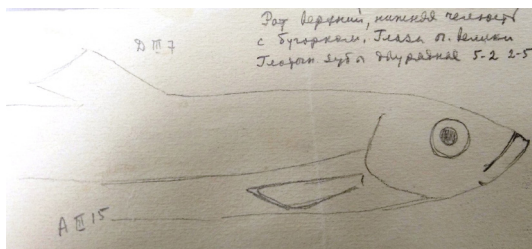 Рот верхний, нижняя челюсть
с бугорком. Глаза оч. велики
Глоточн зубы двурядные 5-2 2-5
D III 7
A III 15